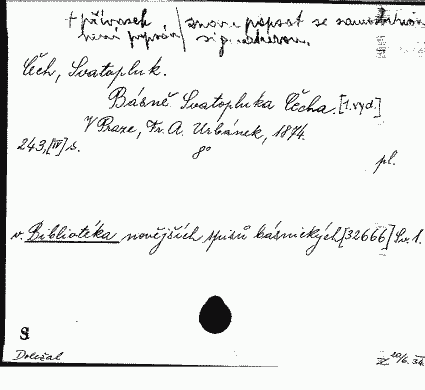 + přívazek / znovu popsat se samostatnou
není popsán / signaturou.
Čech, Svatopluk.
Básně Svatopluka Čecha. [1. vyd.]
V Praze, Fr. A. Urbánek, 1874.
243, [IV] s. 8° pl.
v. Bibliotéka novějších spisů básnických [32666] Sv. 1.
S
Doležal 20/6. 34.